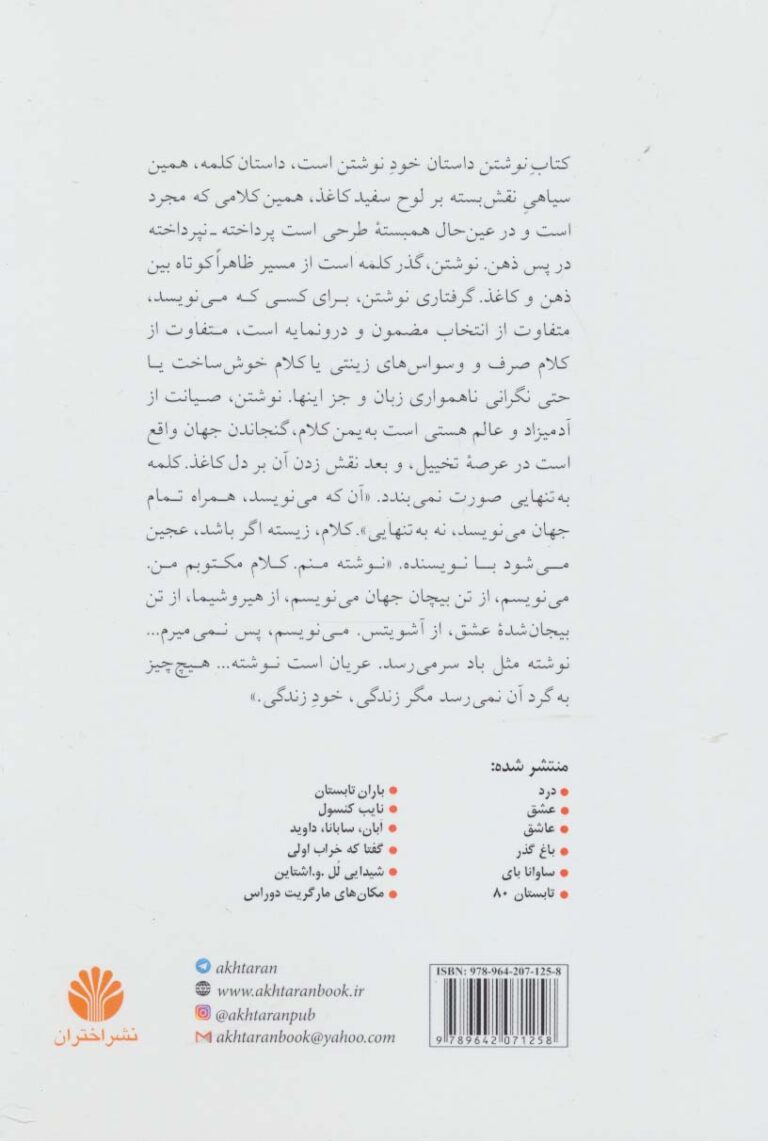 کتابِ نوشتن داستان خودِ نوشتن است، داستان کلمه، همین
سیاهیِ نقش‌بسته بر لوح سفید کاغذ، همین کلامی که مجرد
است و در عین‌حال همبستهٔ طرحی است پرداخته ـ نپرداخته
در پس ذهن. نوشتن، گذر کلمه است از مسیر ظاهراً کوتاه بین
ذهن و کاغذ. گرفتاری نوشتن، برای کسی که می‌نویسد،
متفاوت از انتخاب مضمون و درونمایه است، متفاوت از
کلام صرف و وسواس‌های زینتی یا کلام خوش‌ساخت یا
حتی نگرانی ناهمواری زبان و جز اینها. نوشتن، صیانت از
آدمیزاد و عالم هستی است به‌یمن کلام، گنجاندن جهان واقع
است در عرصهٔ تخییل، و بعد نقش زدن آن بر دل کاغذ. کلمه
به‌تنهایی صورت نمی‌بندد. «آن که می‌نویسد، همراه تمام
جهان می‌نویسد، نه به‌تنهایی». کلام، زیسته اگر باشد، عجین
می‌شود با نویسنده. «نوشته منم. کلام مکتوبم من.
می‌نویسم، از تن بیجان جهان می‌نویسم، از هیروشیما، از تن
بیجان‌شدهٔ عشق، از آشویتس. می‌نویسم، پس نمی‌میرم...
نوشته مثل باد سر می‌رسد. عریان است نوشته... هیچ‌چیز
به گرد آن نمی‌رسد مگر زندگی، خودِ زندگی.»
منتشر شده:
درد
عشق
عاشق
باغ گذر
ساوانا بای
تابستان ۸۰
باران تابستان
نایب کنسول
آبان، سابانا، داوید
گفتا که خراب اولی
شیدایی لُل .و.اشتاین
مکان‌های مارگریت دوراس
akhtaran
www.akhtaranbook.ir
@akhtaranpub
akhtaranbook@yahoo.com
نشر اختران
ISBN: 978-964-207-125-8
9 789642 071258